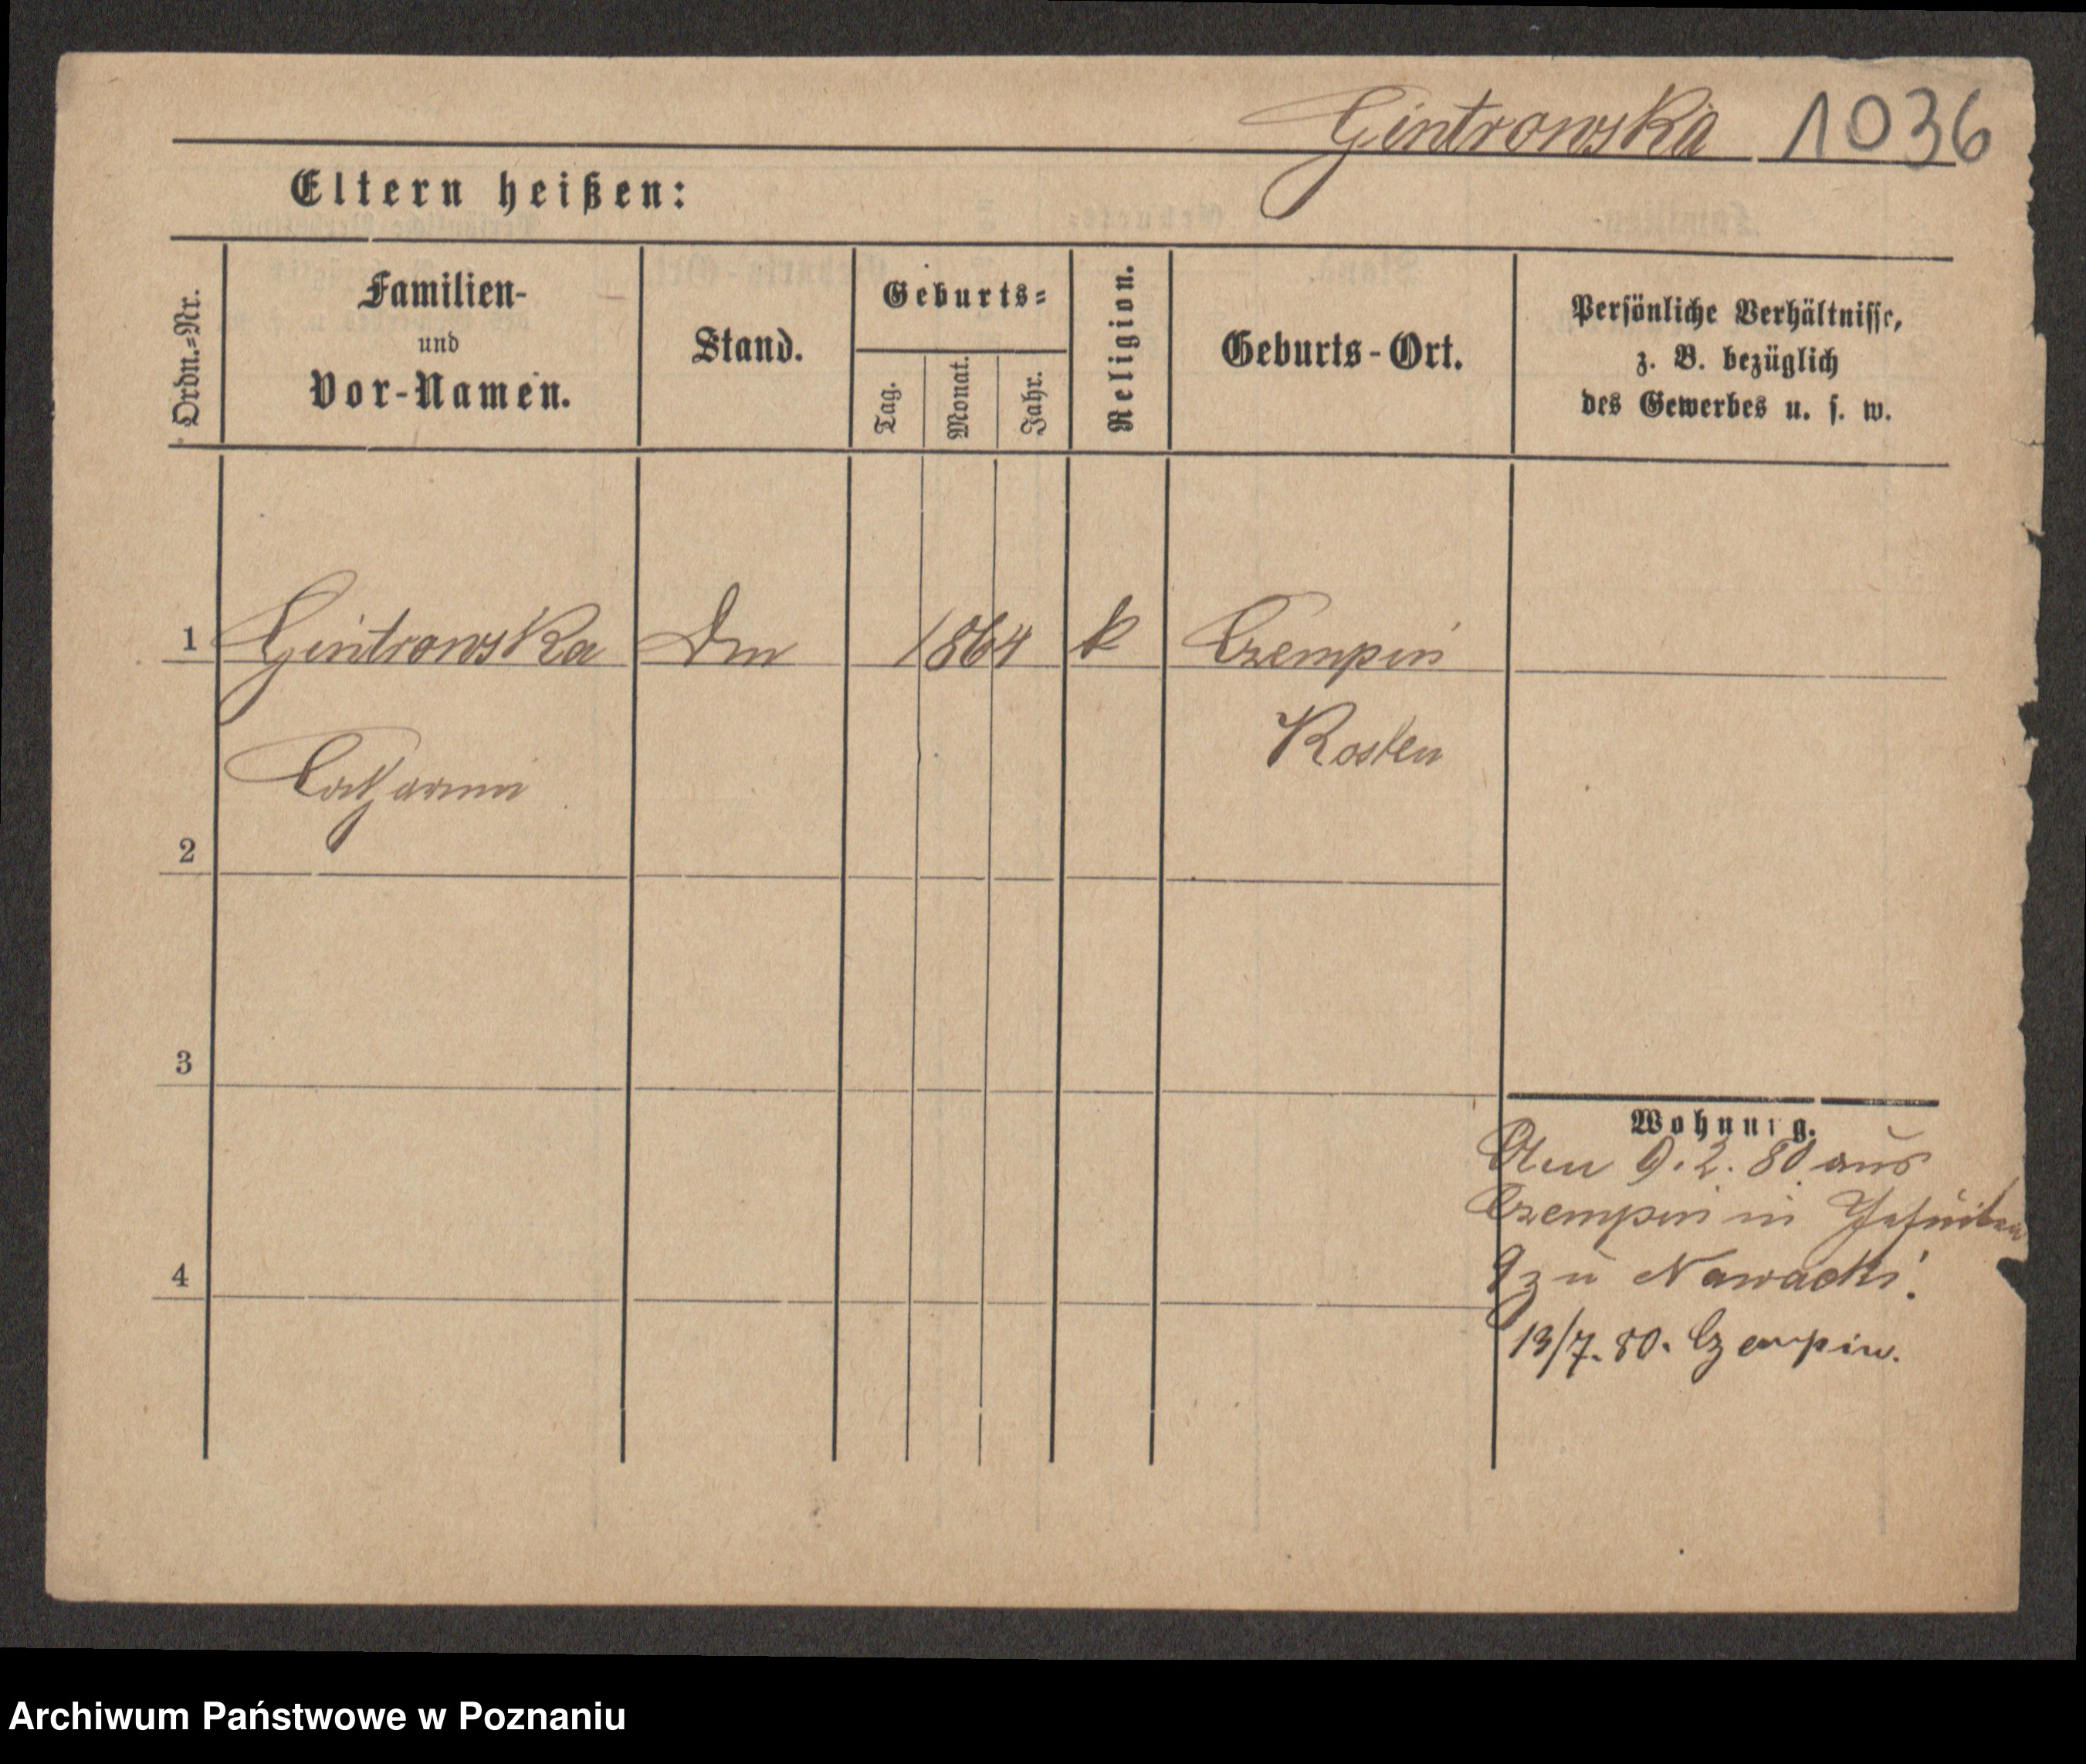 Gintrowska 1036
Eltern heißen:
Ordn.=Nr.
Familien-
und
Vor-Namen.
Stand.
Geburts=
Tag.
Monat.
Jahr.
Religion.
Geburts-Ort.
Persönliche Verhältnisse,
z. B. bezüglich
des Gewerbes u. s. w.
1 Gintrowska Dm 1864 k Czempin
Kosten
Catharina
2
3
4
Wohnung.
9. 2. 80 aus
Czempin in Jesuiten
9 zu Nawacki.
13/7. 80. Czempin.
Archiwum Państwowe w Poznaniu